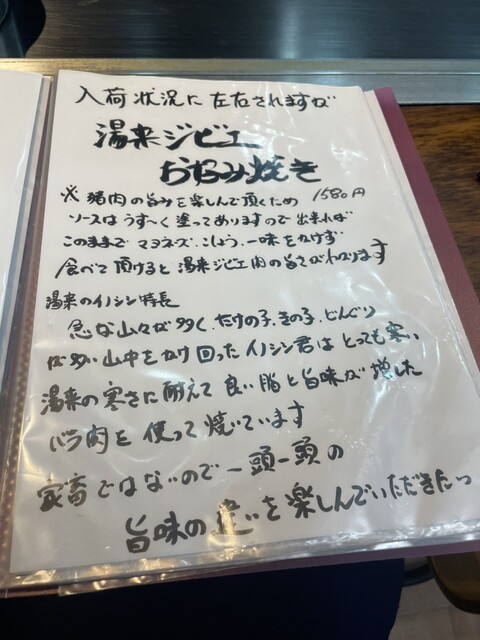 入荷状況に左右されますが
湯来ジビエ
お好み焼き
※ 猪肉の旨みを楽しんで頂くため 1580円
ソースはうす〜く塗ってありますので出来れば
このままで マヨネーズ、こしょう、一味をかけず
食べて頂けると湯来ジビエ肉の旨さがわかります
湯来のイノシシ特長
急な山々が多く、たけの子、きの子、どんぐり
が多い山中をかけ回ったイノシシ君はとっても寒い
湯来の寒さに耐えて良い脂と旨味が増した
バラ肉を使って焼いています
家畜ではないので一頭一頭の
旨味の違いを楽しんでいただきたいっ